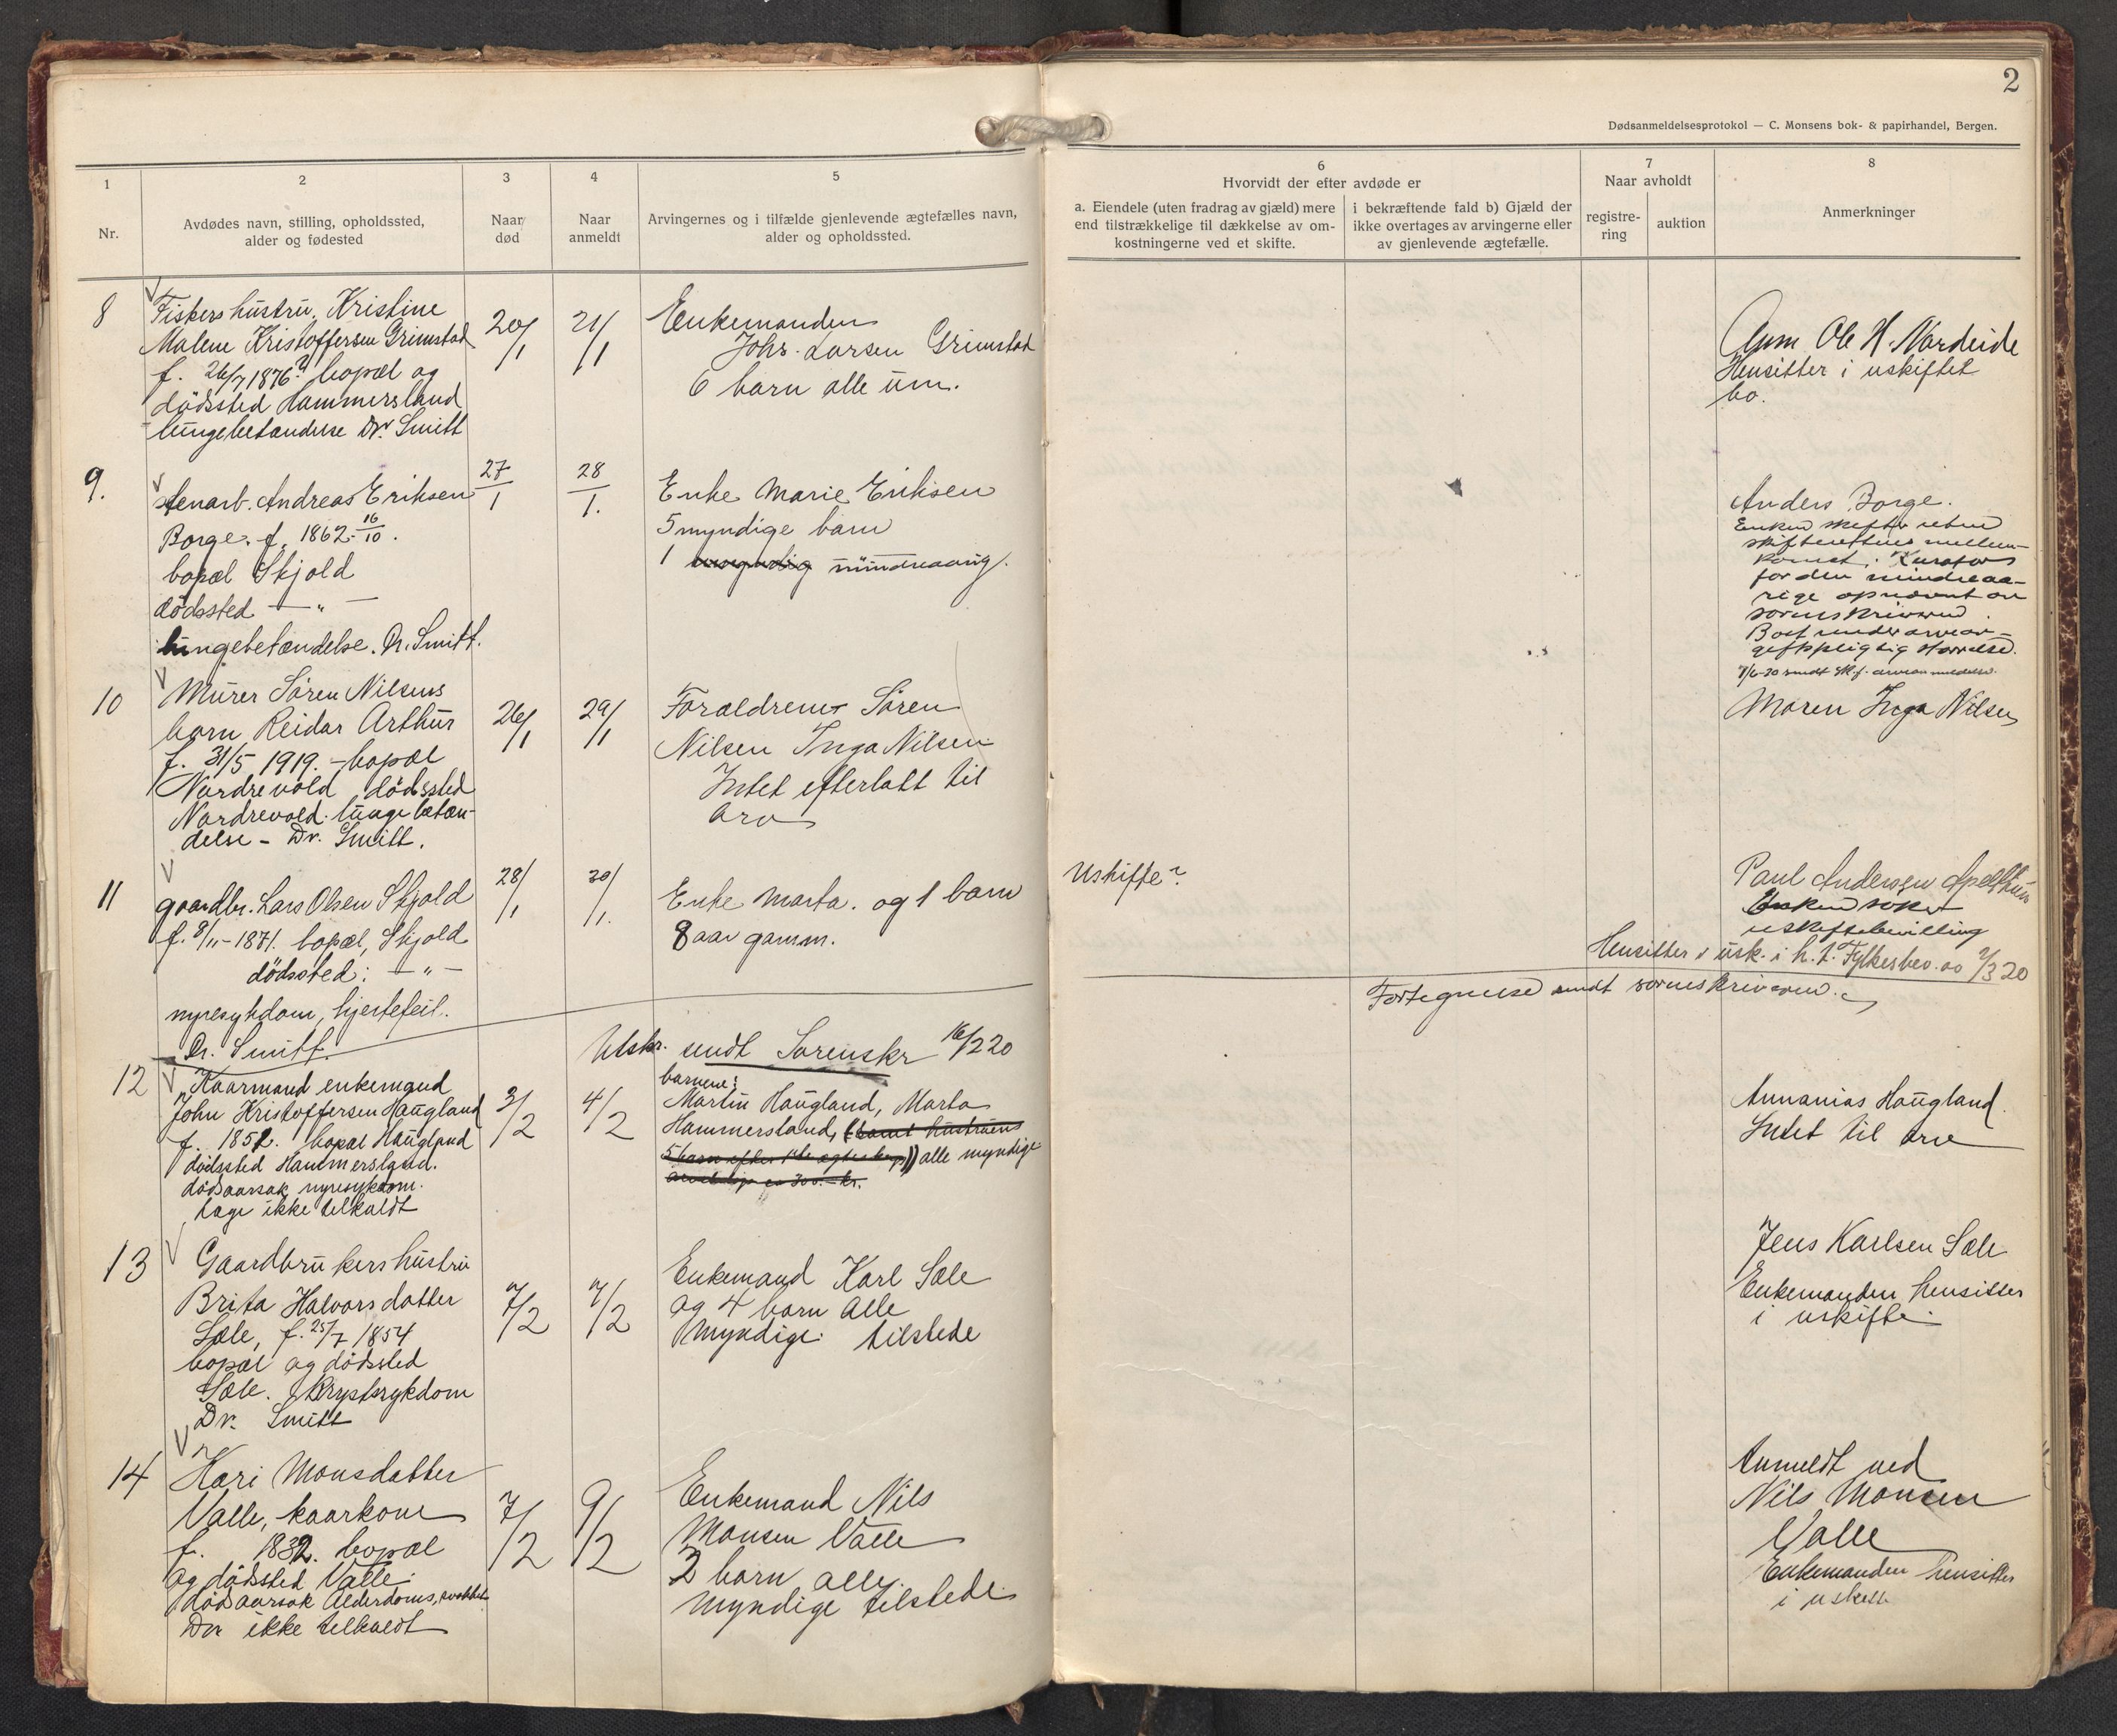 2
Dødsanmeldelsesprotokol — C. Monsens bok- & papirhandel, Bergen.
1
Nr.
2
Avdødes navn, stilling, opholdssted,
alder og fødested
3
Naar
død
4
Naar
anmeldt
5
Arvingernes og i tilfælde gjenlevende ægtefælles navn,
alder og opholdssted.
6
Hvorvidt der efter avdøde er
a. Eiendele (uten fradrag av gjæld) mere
end tilstrækkelige til dækkelse av om-
kostningerne ved et skifte.
i bekræftende fald b) Gjæld der
ikke overtages av arvingerne eller
av gjenlevende ægtefælle.
7
Naar avholdt
registre-
ring
auktion
8
Anmerkninger
8
Fiskers hustru, Kristine
Malene Kristoffersen Grimstad
f. 26/7 1876 bopæl og
dödssted Hammersland
lungebetændelse Dr. Smitt
20/1
21/1
Enkemanden
Johs. Larsen Grimstad
6 barn alle um.
Anm Ole H. Nordeide
Hensitter i uskiftet
bo.
9.
Stenarb. Andreas Eriksen
Borge. f. 1862 16/10.
bopæl Skjold
dödssted — " —
lungebetændelse. Dr. Smitt.
27/1
28/1.
Enke Marie Eriksen
5 myndige barn
1 mindreaarig.
Anders Borge.
Enken skifter uten
skifterettens mellem-
komst. Kurator
for den mindreaa-
rige opnævnt av
sorenskriveren.
Boet under arveav-
giftspligtig størrelse.
10
Murer Sören Nilsens
barn Reidar Arthur
f. 31/5 1919. - bopæl
Nordrevold dödssted
Nordrevold. lungebetæn-
delse - Dr. Smitt.
26/1
29/1
Forældrene Sören
Nilsen Inga Nilsen
Intet efterlatt til
arv
Moren Inga Nilsen
11
gaardbr. Lars Olsen Skjold
f. 8/11 - 1871. bopæl, Skjold
dödssted: — " —
nyresykdom, hjertefeil.
Dr. Smitt.
28/1
30/1.
Enke Marta. og 1 barn
8 aar gamm.
Uskifte?
Paul Andersen Apeltun
Enken søker
uskiftebevilling
Hensitter i usk. i h. t. Fylkesbev. av 2/3 20
Fortegnelse sendt sorenskriveren.
Utskr. sendt Sorenskr 16/2 20
12
Kaarmand enkemand
John Kristoffersen Haugland
f. 1852. bopæl Haugland
dödssted Hammersland.
dödsaarsak nyresykdom.
læge ikke tilkaldt
3/2
4/2
barnene:
Martin Haugland, Marta
Hammersland, (samt hustruens
5 barn efter 1ste ægteskap) alle myndige
Annanias Haugland.
Intet til arv
13
Gaardbrukers hustru
Brita Halvorsdatter
Sæle, f. 25/7 1854
bopæl og dödssted
Sæle. Brystsykdom
Dr. Smitt
7/2
7/2
Enkemand Karl Sæle
og 4 barn alle
myndige. tilstede
Jens Karlsen Sæle
Enkemanden hensitter
i uskifte
14
Kari Monsdatter
Valle, kaarkone
f. 1832. bopæl
og dödssted Valle.
dödsaarsak Alderdoms,
Dr. ikke tilkaldt
7/2
9/2
Enkemand Nils
Monsen Valle
2 barn alle
myndige tilstede
Anmeldt ved
Nils Monsen
Valle
Enkemanden hensitter
i uskifte